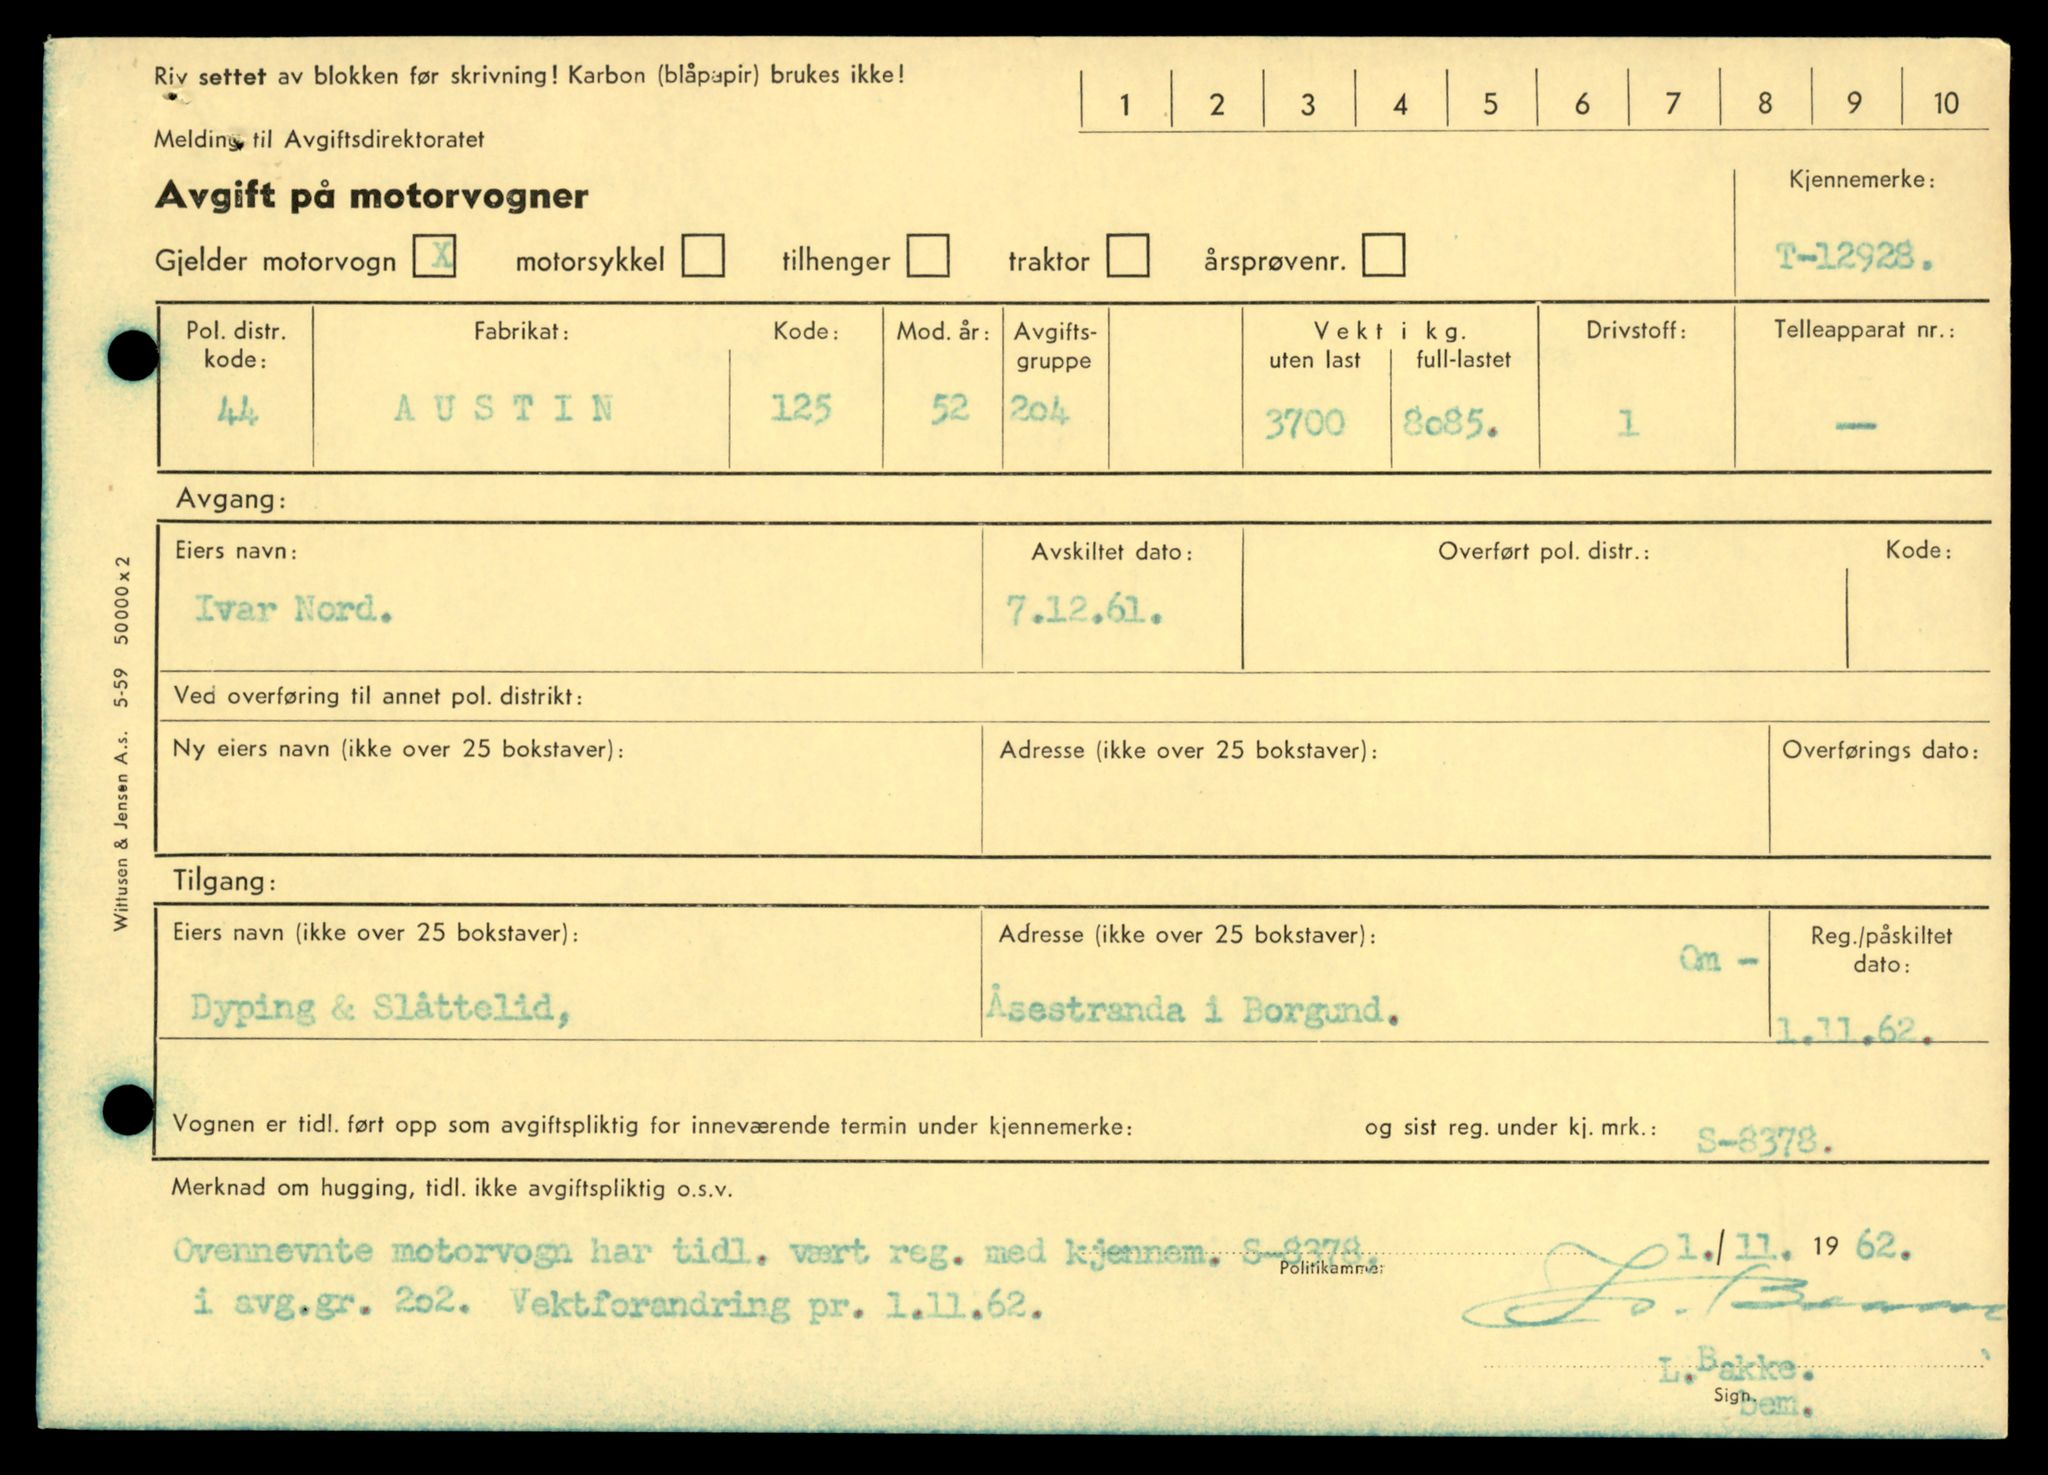 Riv settet av blokken før skrivning! Karbon (blåpapir) brukes ikke!
1 2 3 4 5 6 7 8 9 10
Melding til Avgiftsdirektoratet
Avgift på motorvogner
Kjennemerke:
Gjelder motorvogn X motorsykkel tilhenger traktor årsprøvenr.
T-12928.
Pol. distr. kode:
Fabrikat:
Kode:
Mod. år:
Avgifts-gruppe
Vekt i kg.
uten last
full-lastet
Drivstoff:
Telleapparat nr.:
44 AUSTIN 125 52 2o4 3700 8o85. 1 —
Avgang:
Eiers navn: Avskiltet dato: Overført pol. distr.: Kode:
Ivar Nord. 7.12.61.
Ved overføring til annet pol. distrikt:
Ny eiers navn (ikke over 25 bokstaver): Adresse (ikke over 25 bokstaver): Overførings dato:
Tilgang:
Eiers navn (ikke over 25 bokstaver): Adresse (ikke over 25 bokstaver): Reg./påskiltet dato:
Om -
Dyping & Slåttelid, Åsestranda i Borgund. 1.11.62.
Vognen er tidl. ført opp som avgiftspliktig for inneværende termin under kjennemerke: og sist reg. under kj. mrk.: S-8378.
Merknad om hugging, tidl. ikke avgiftspliktig o.s.v.
Ovennevnte motorvogn har tidl. vært reg. med kjennem. S-8378. 1./11. 19 62.
Politikammer
i avg.gr. 2o2. Vektforandring pr. 1.11.62.
L.Bakke.
Sign.
bem.
Wittusen & Jensen A.s. 5-59 50000x2